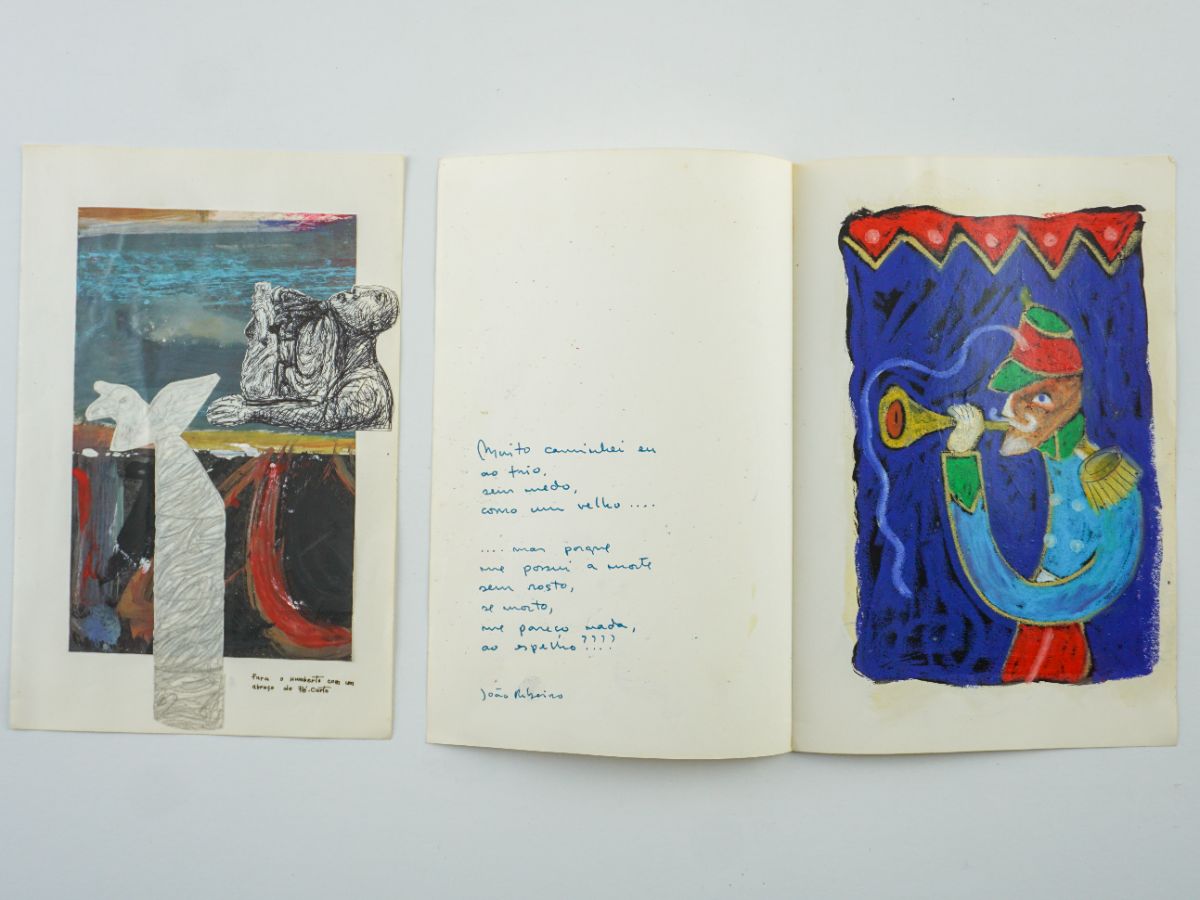 Para o Humberto com um
abraço do
Muito caminhei eu
ao frio,
sem medo,
como um velho ....
.... mas porque
me possui a morte
sem rosto,
se morto,
me pareço nada,
ao espelho ????
João Ribeiro